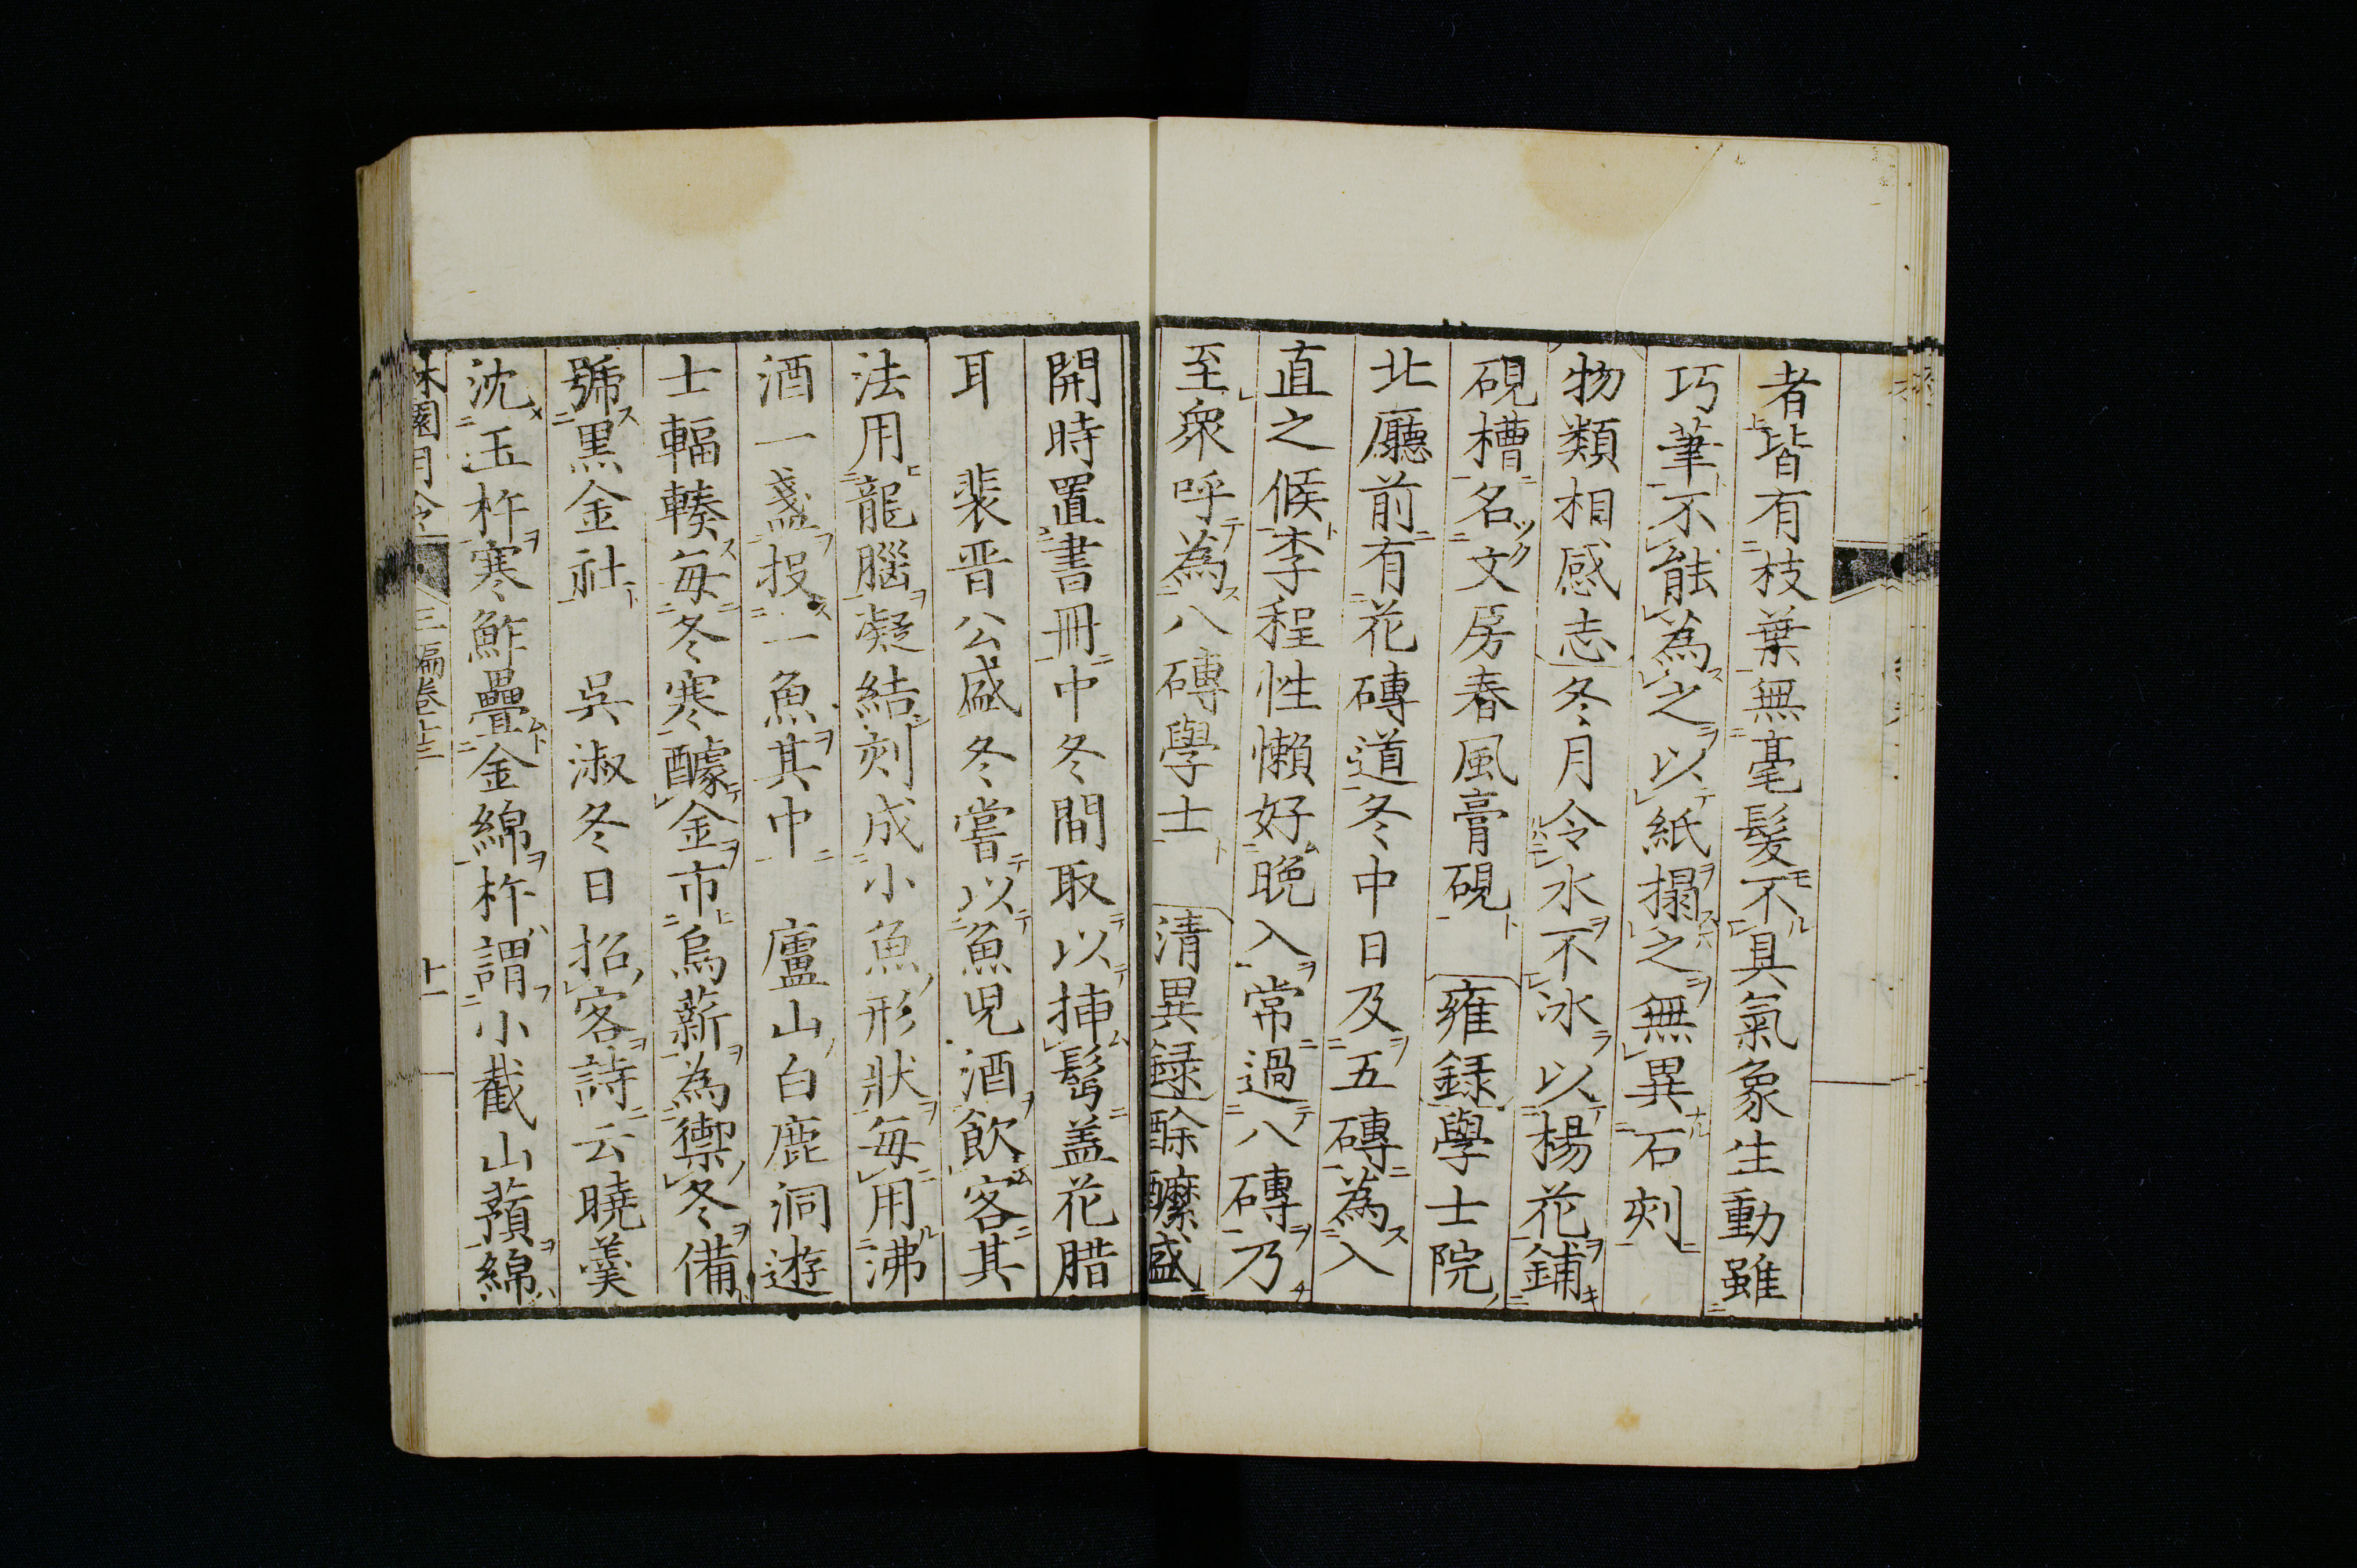 者皆有枝葉無毫髮不具氣象生動雖
巧筆不能為之以紙搨之無異石刻
物類相感志冬月令水不冰以楊花鋪
硯槽名文房春風膏硯 雍録學士院
北廳前有花磚道冬中日及五磚為入
直之候李程性懶好晚入常過八磚乃
至衆呼為八磚學士 清異録酴醾盛
開時置書冊中冬間取以挿髩盖花腊
耳 裴晋公盛冬嘗以魚児酒飲客其
法用龍腦凝結刻成小魚形狀毎用沸
酒一盞投一魚其中 廬山白鹿洞遊
士輻輳毎冬寒醵金市烏薪為禦冬備
號黒金社 吳淑冬日招客詩云曉羹
沈玉杵寒鮓疊金綿杵謂小截山蕷綿
林園月令 三編卷十三 十一